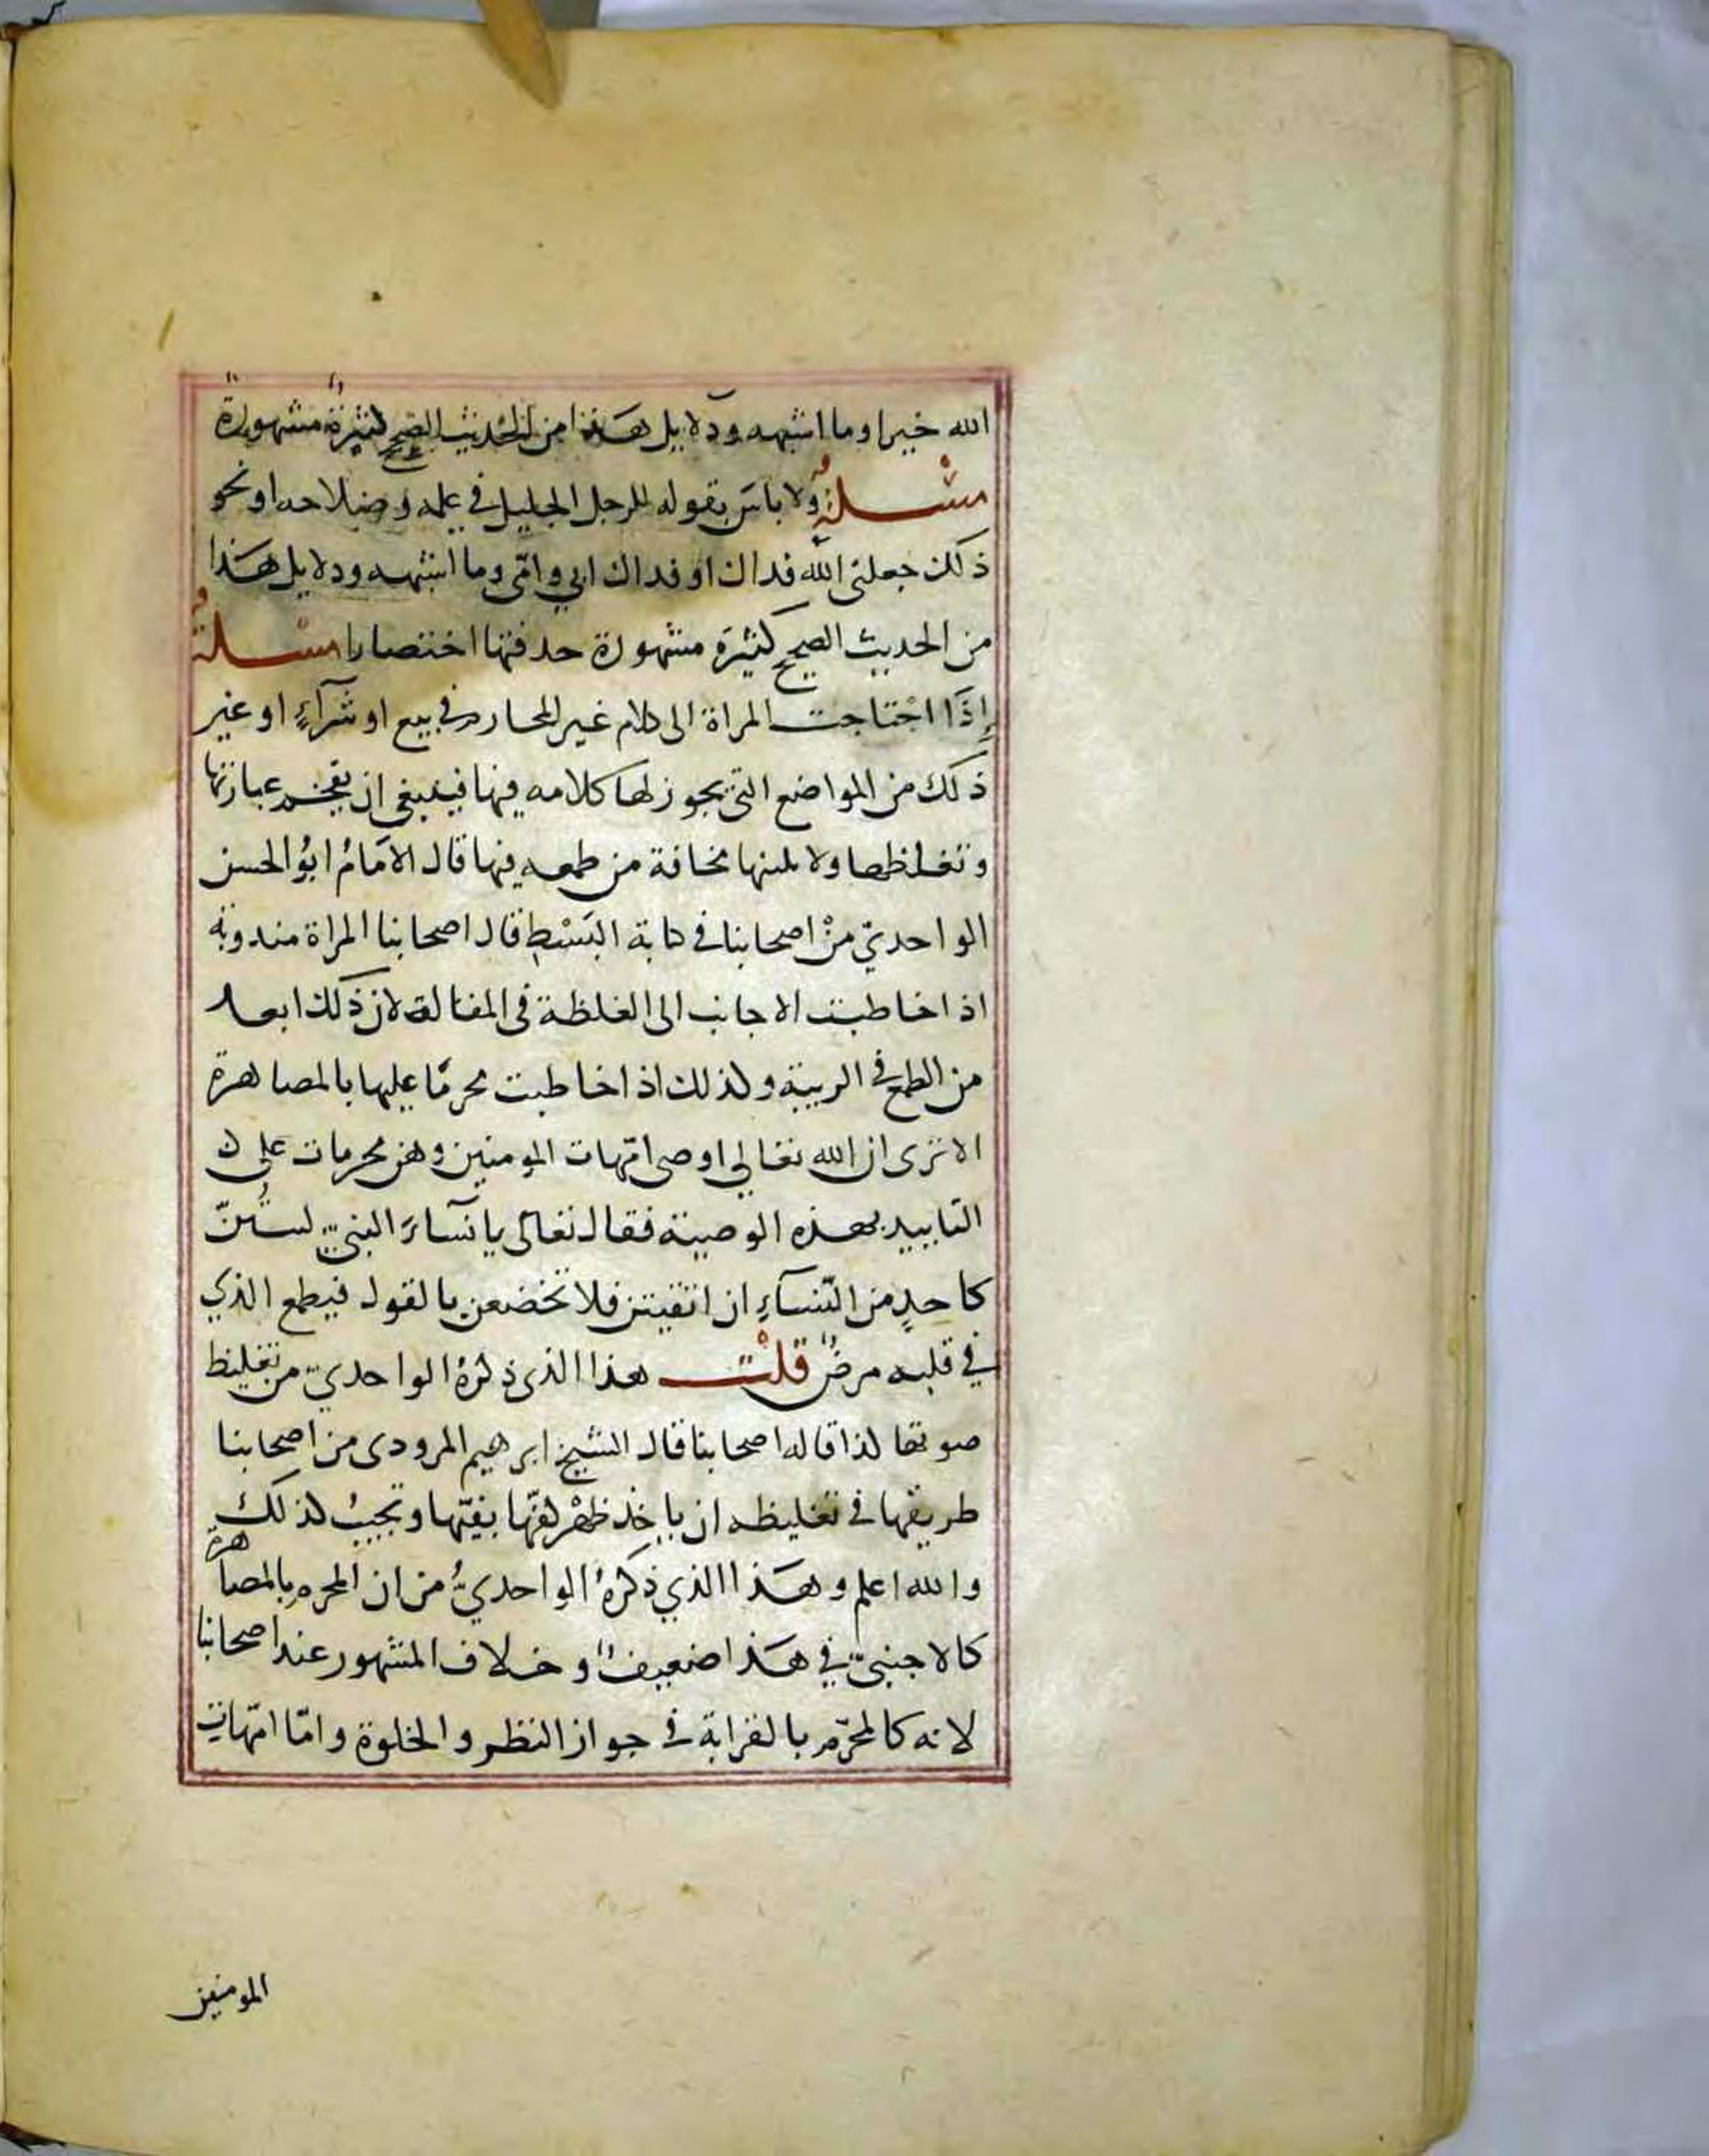 الله خيرا وما اشبهه ودلايل هذا من الحديث الصحيح كثيرة مشهورة
مسئلة ولا باس بقوله للرجل الجليل في علمه وصلاحه او نحو
ذلك جعلني الله فداك او فداك ابي وامّي وما اشبهه ودلايل هَذا
من الحديث الصحيح كثيرَة مشهورة حدفتها اختصارا مسئلة
إِذَا احْتاجت المراة الى كلام غير المحارم في بيع او شرآءٍ او غير
ذلك من المواضع التي يجوز لها كلامه فيها فينبغي ان تفخم عبارتها
وتغلظها ولا تلينها مخافة من طمعه فيها قال الامَامُ ابوُ الحسن
الواحديّ منْ اصحابنا في كتابة البَسْط قال اصحابنا المراة مندوبة
اذا خاطبت الاجانب الى الغلظة في المقالة لان ذلك ابعد
من الطمع في الريبة وكذلك اذا خاطبت محرمًا عليها بالمصاهرة
الا ترى ان الله تعالي اوصى امّهات المومنين وهن محرمات على
التابيد بهذه الوصية فقال تعالى يا نسآءَ النبيّ لستُنّ
كاحدٍ من النّسآءِ ان اتقيتن فلا تخضعن بالقول فيطمع الذي
في قلبه مرضٌ قلْت هذا الذى ذكرهُ الواحديّ من تغليظ
صوتها كذا قاله اصحابنا قال الشيخ ابرهيم المرودى من اصحابنا
طريقها في تغليظه ان ياخذ ظهْر كفّها بفيّها وتجيبُ كذلك
والله اعلم وهَذا الذي ذكرهُ الواحديُّ من ان المحرم بالمصاهرة
كالاجنبيّ في هَذا ضعيفٌ وخلاف المشهور عند اصحابنا
لانه كالمحرّم بالقرابة في جواز النظر والخلوة وامّا امّهات
المومنين